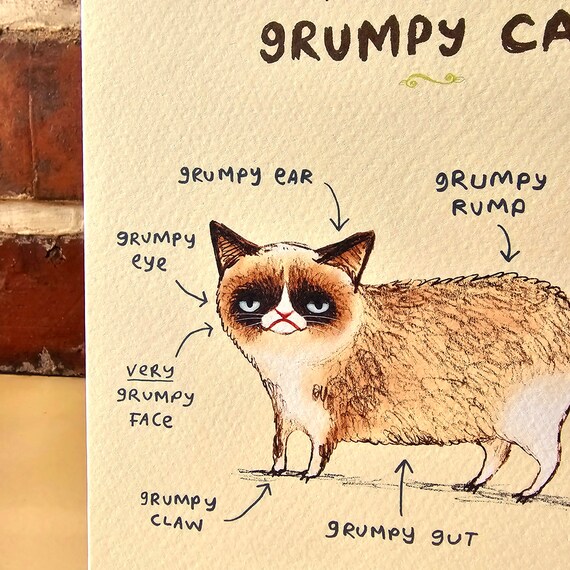 gRUMPY CA
gRUMPY eAR
gRUMPY
RUMP
gRUMPY
eye
veRy
gRUMPY
FACe
gRUMPY
CLAW
gRUMPY gUT